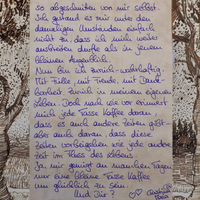 so abgeschnitten von mir selbst.
Ich gestand es mir unter den
damaligen Umständen einfach
nicht zu, dass ich mich weder
ausbreiten durfte als in jenem
kleinen Augenblick.
Nun bin ich zurück - wahrhaftig.
Mit Fülle, mit Freude, mit Dank-
barkeit zurück in meinem eigenen
Leben. Doch nach wie vor erinnert
mich jede Tasse Kaffee daran,
dass es auch andere Zeiten gibt
aber auch daran, dass diese
Zeiten vorbeigehen wie jede andere
Zeit im Fluss des Lebens.
Ja, mir genügt an manchen Tagen
nur eine kleine Tasse Kaffee
um glücklich zu sein.
Und Dir?